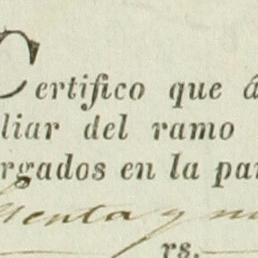 Certifico que á
liar del ramo
rgados en la par
senta y nu
rs.